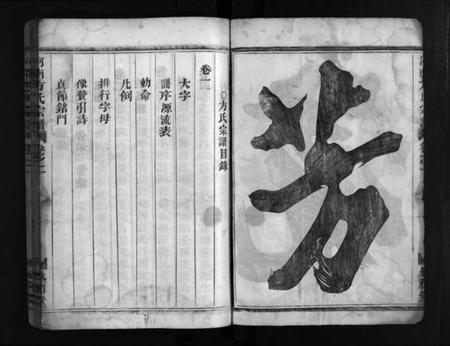 芳
○方氏宗譜目錄
卷一
大字
譜序源流表
勅命
凡例
排行字母
像贊引詩
貞節銘門